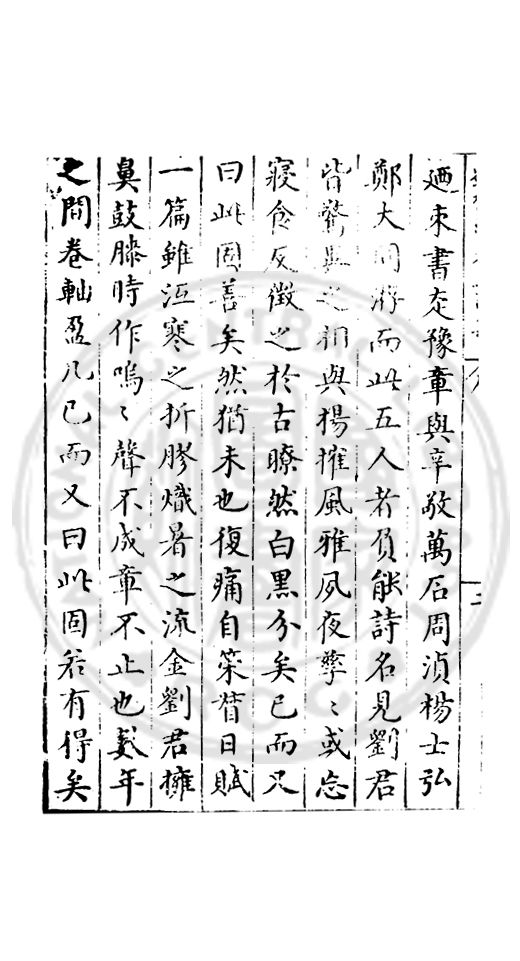 廼束書走豫章與辛敬萬石周湞楊士弘
鄭大同游而此五人者負能詩名見劉君
皆驚異之相與楊搉風雅夙夜孳〻或忘
寢食反徵之於古瞭然白黑分矣已而又
曰此固善矣然猶未也復痛自策督日賦
一篇雖沍寒之折膠熾暑之流金劉君擁
鼻鼓膝時作嗚〻聲不成章不止也數年
之間卷軸盈几已而又曰此固若有得矣